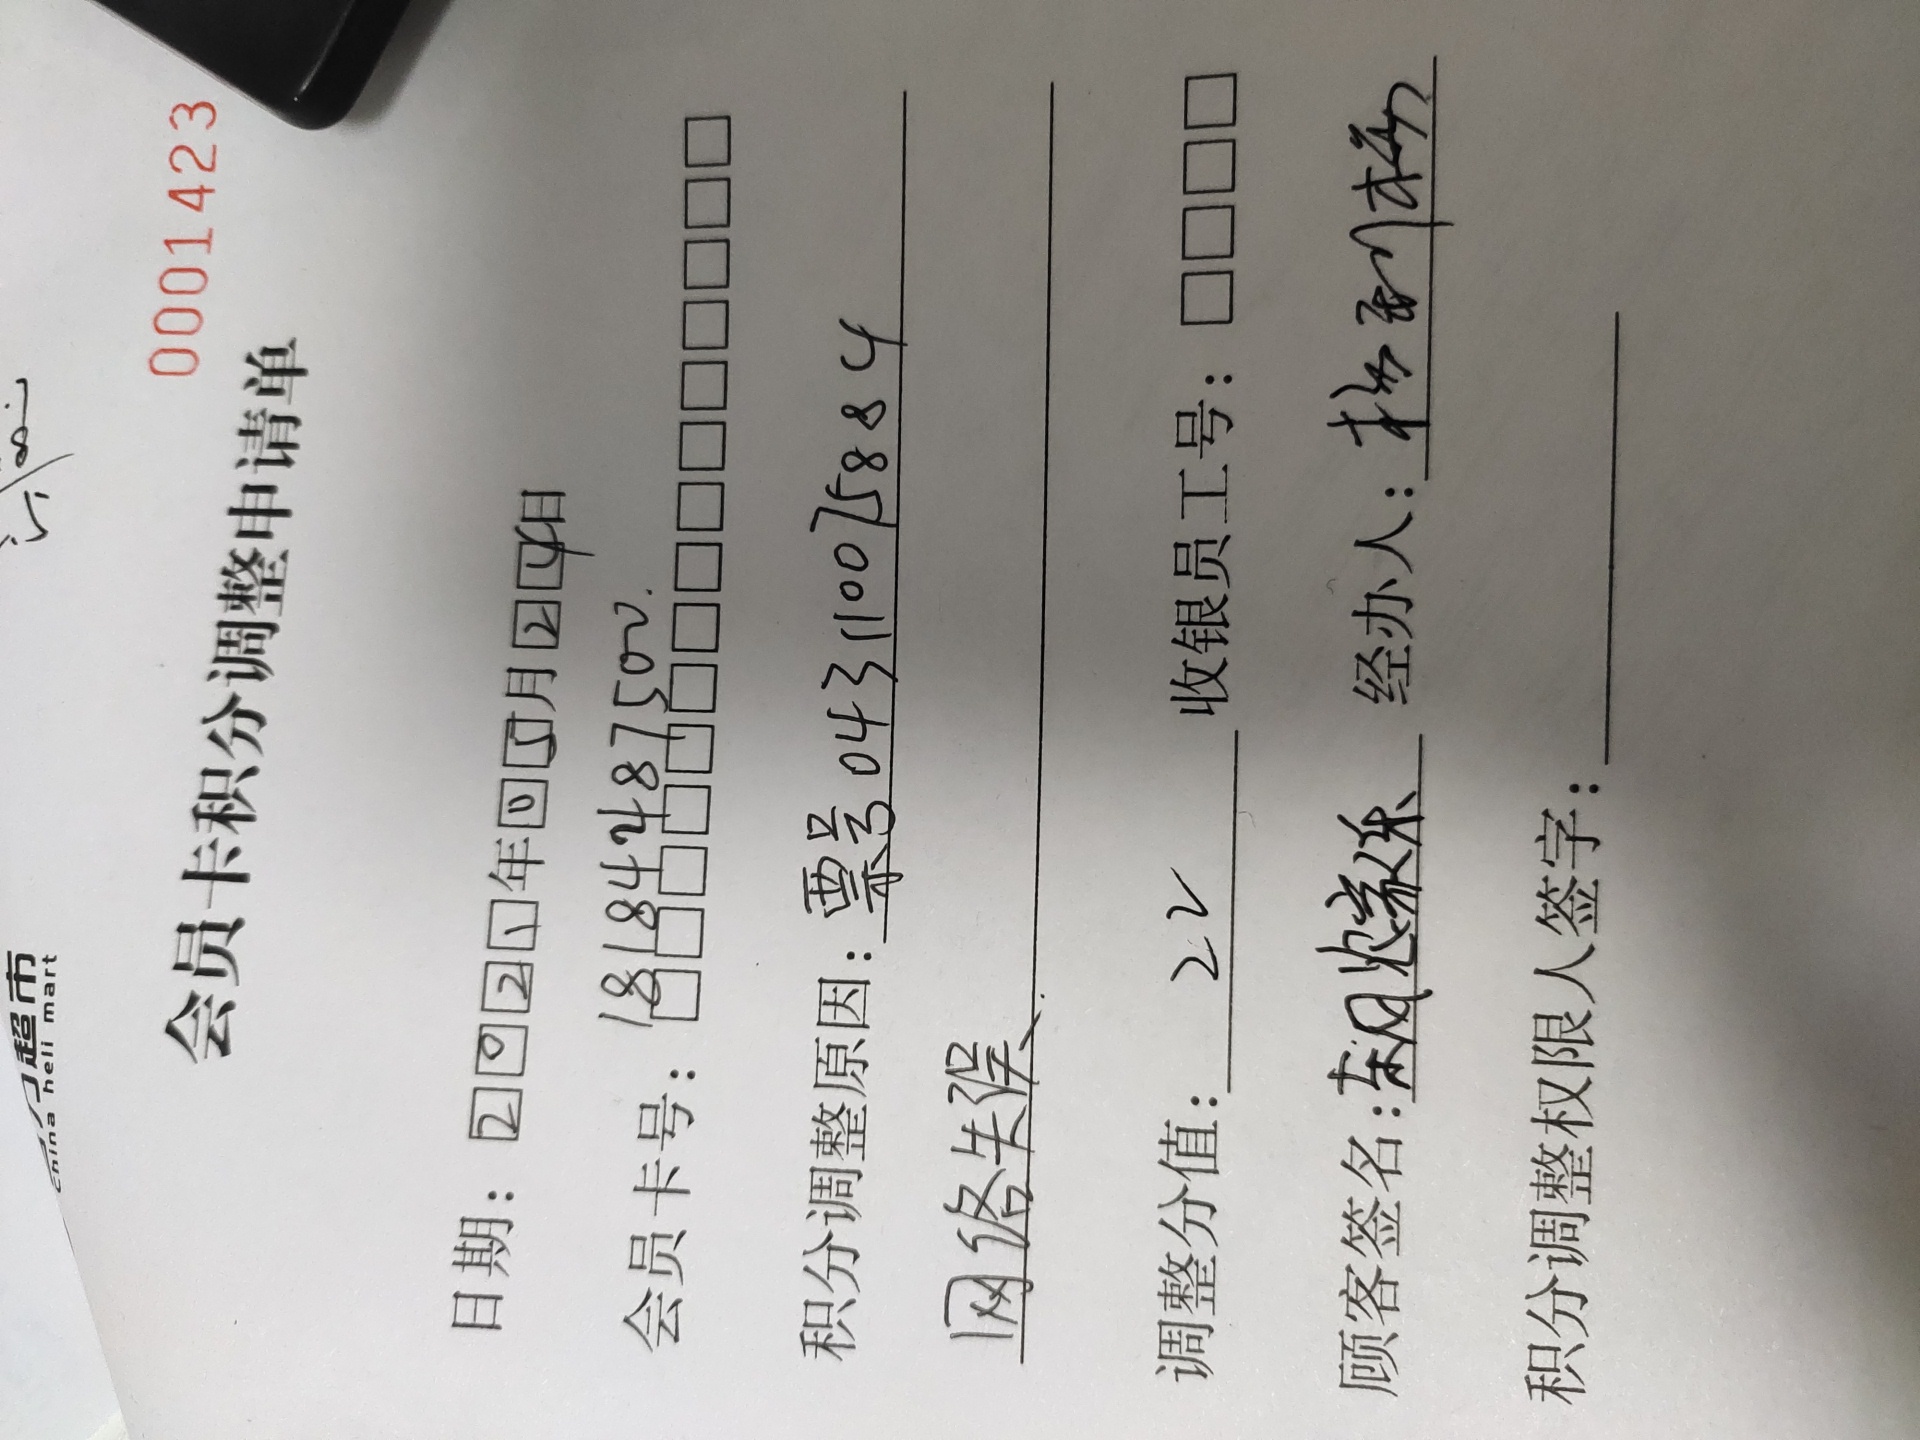 超市
china heli mart
0001423
会员卡积分调整申请单
日期：2021年05月24日
会员卡号：181842487500.
积分调整原因：票号043110075884
网络失误、
调整分值：22 收银员工号：
顾客签名： 经办人：
积分调整权限人签字：